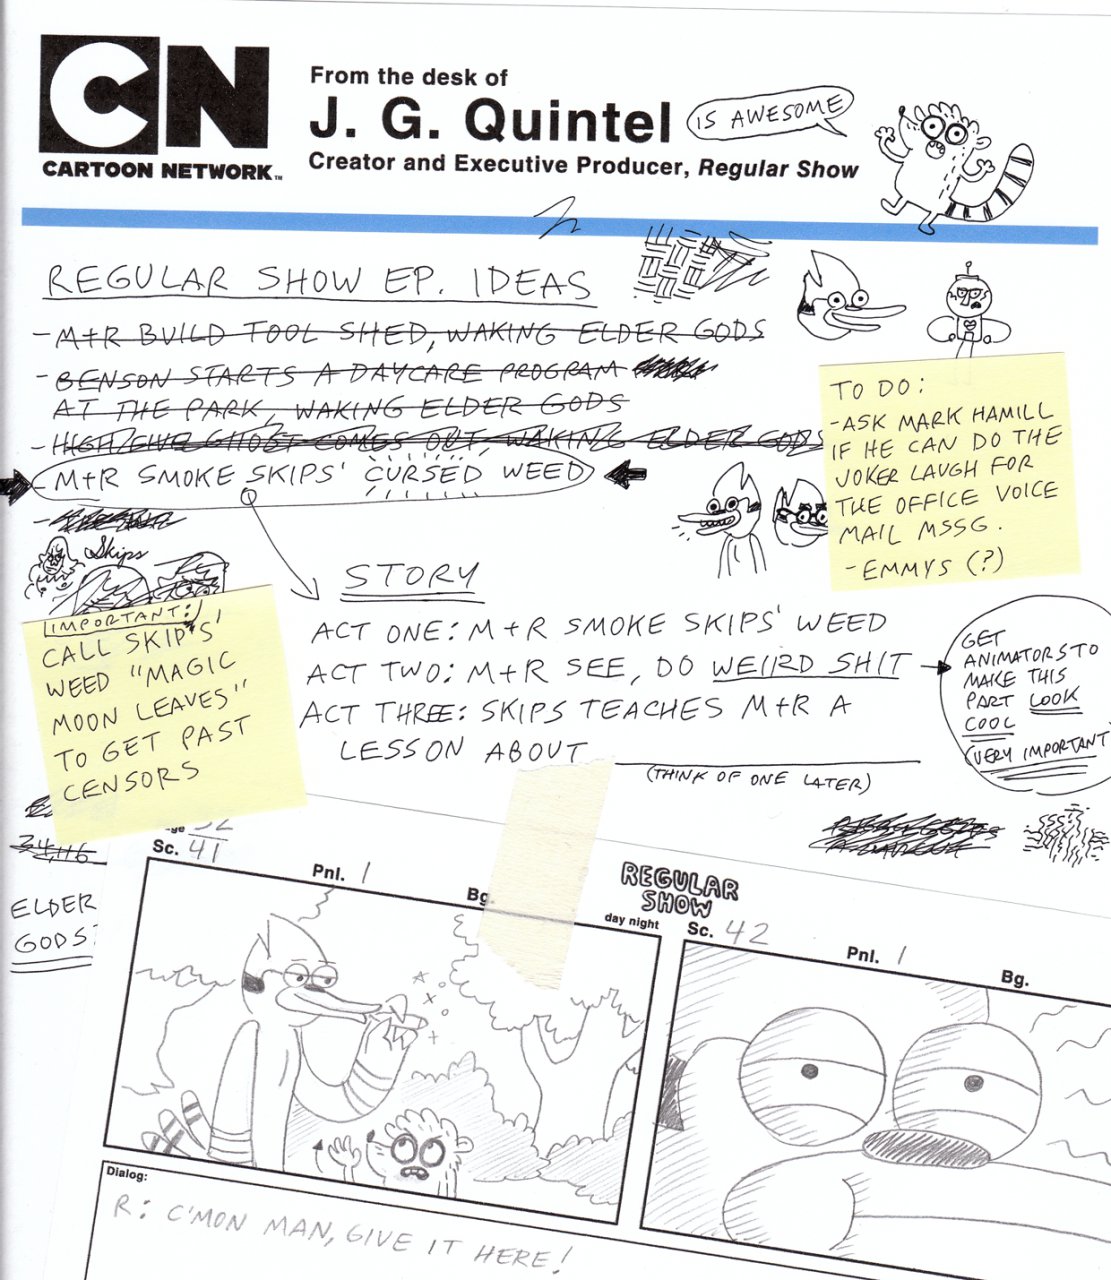 CN
CARTOON NETWORK™
From the desk of
J. G. Quintel
IS AWESOME
Creator and Executive Producer, Regular Show
REGULAR SHOW EP. IDEAS
- M+R BUILD TOOL SHED, WAKING ELDER GODS
- BENSON STARTS A DAYCARE PROGRAM
AT THE PARK, WAKING ELDER GODS
- HIGH FIVE GHOST COMES OUT, WAKING ELDER GODS
M+R SMOKE SKIPS' CURSED WEED
-
Skips
TO DO:
-ASK MARK HAMILL
IF HE CAN DO THE
JOKER LAUGH FOR
THE OFFICE VOICE
MAIL MSSG.
-EMMYS (?)
IMPORTANT:
CALL SKIPS'
WEED "MAGIC
MOON LEAVES"
TO GET PAST
CENSORS
STORY
ACT ONE: M+R SMOKE SKIPS' WEED
ACT TWO: M+R SEE, DO WEIRD SHIT
ACT THREE: SKIPS TEACHES M+R A
LESSON ABOUT
(THINK OF ONE LATER)
GET
ANIMATORS TO
MAKE THIS
PART LOOK
COOL
(VERY IMPORTANT
ELDER
GODS?
Sc. 41
Pnl. 1
Bg.
day night
REGULAR
SHOW
Sc. 42
Pnl. 1
Bg.
Dialog:
R: C'MON MAN, GIVE IT HERE!